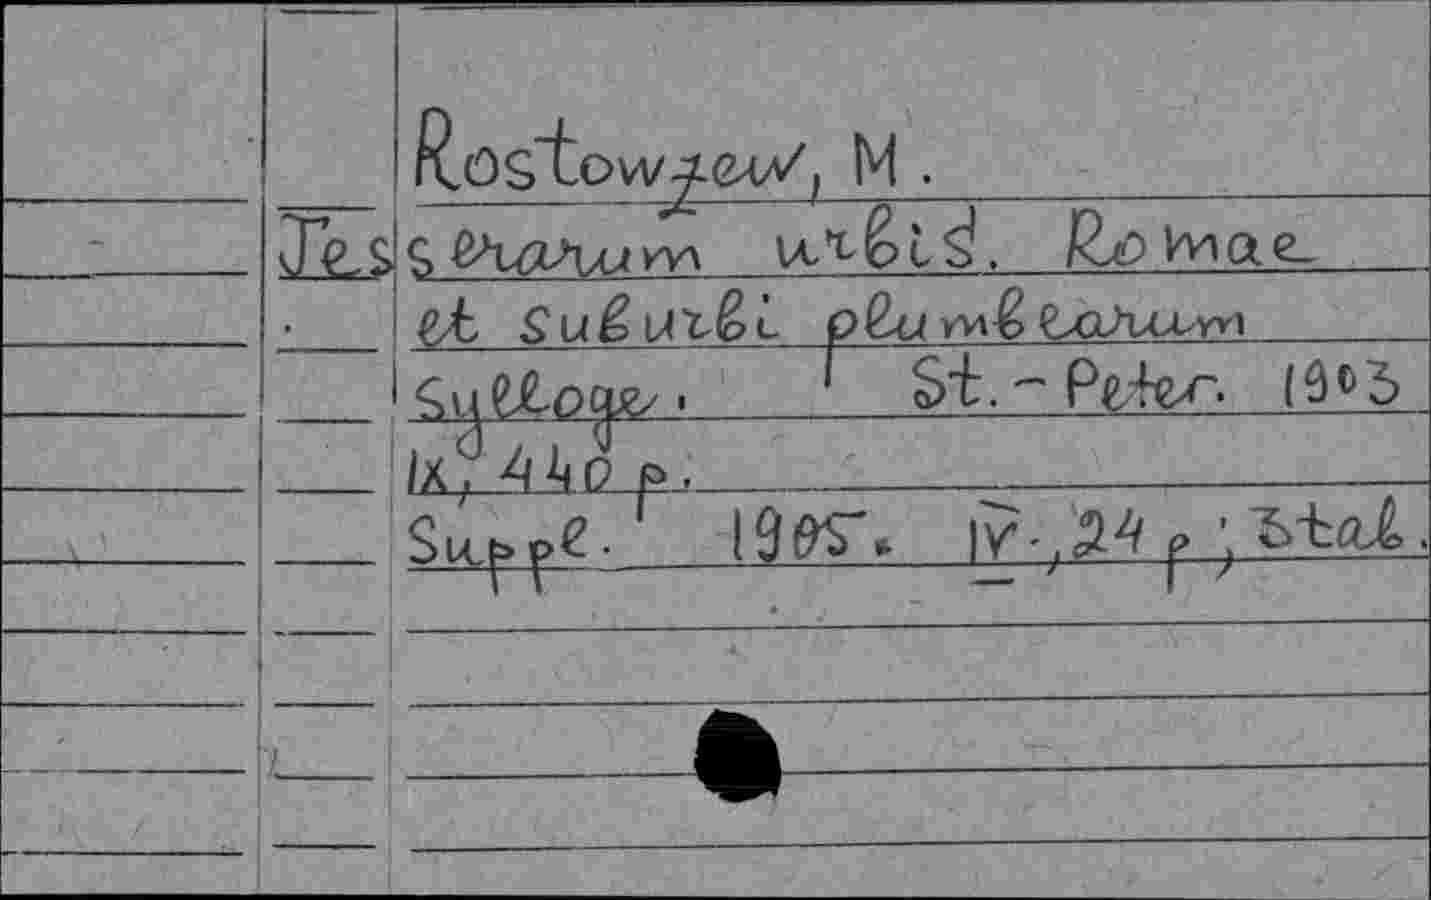 Rostowzew, M.
Tesserarum urbis. Romae
et suburbi plumbearum
Sylloge. St.-Peter. 1903
IX, 440 p.
Suppl. 1905. IV., 24 p; 3 tab.